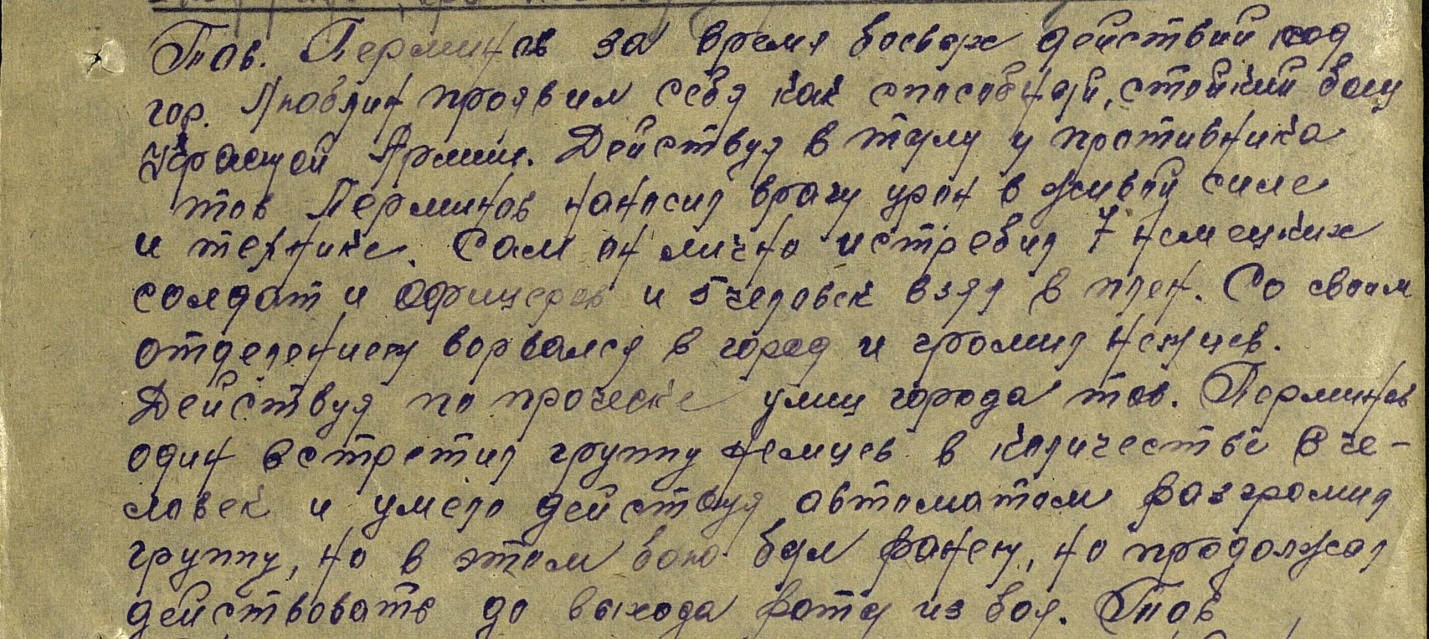 Тов. Перминов за время боевых действий под
гор. Люблин проявил себя как способный, стойкий боец
Красной Армии. Действуя в тылу у противника
тов Перминов наносил врагу урон в живой силе
и технике. Сам он лично истребил 7 немецких
солдат и офицеров и 5 человек взял в плен. Со своим
отделением ворвался в город и громил немцев.
Действуя по проческе улиц города тов. Перминов
один встретил группу немцев в количестве 8 че-
ловек и умело действуя автоматом разгромил
группу, но в этом бою был ранен, но продолжал
действовать до выхода роты из боя. Тов